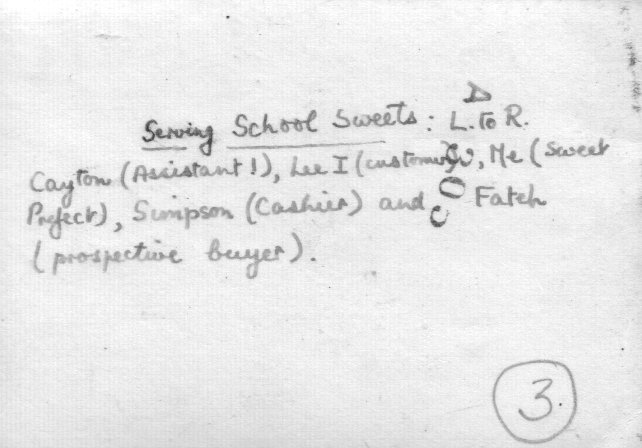 Serving School Sweets: L. to R.
Cayton (Assistant!), Lee I (customer), Me (Sweet
Prefect), Simpson (Cashier) and Fatch
(prospective buyer).
3.